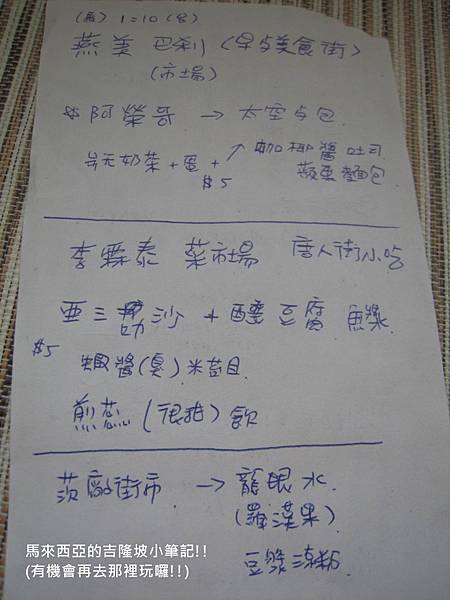 (馬) 1=10 (台)
燕美 巴刹 (早点美食街)
(市場)
阿榮哥 → 太空包
奶茶+蛋+ ↗ 咖椰醬吐司
$5 蘋果麵包
李霖泰 菜市場 唐人街小吃
亜三叻沙 + 釀豆腐 魚漿
$5 蝦醬(臭) 米苔目
煎蕊 (很甜) 飲
茨廠街市 → 龍眼水
(羅漢果)
豆漿涼粉
馬來西亞的吉隆坡小筆記!!
(有機會再去那裡玩囉!!)